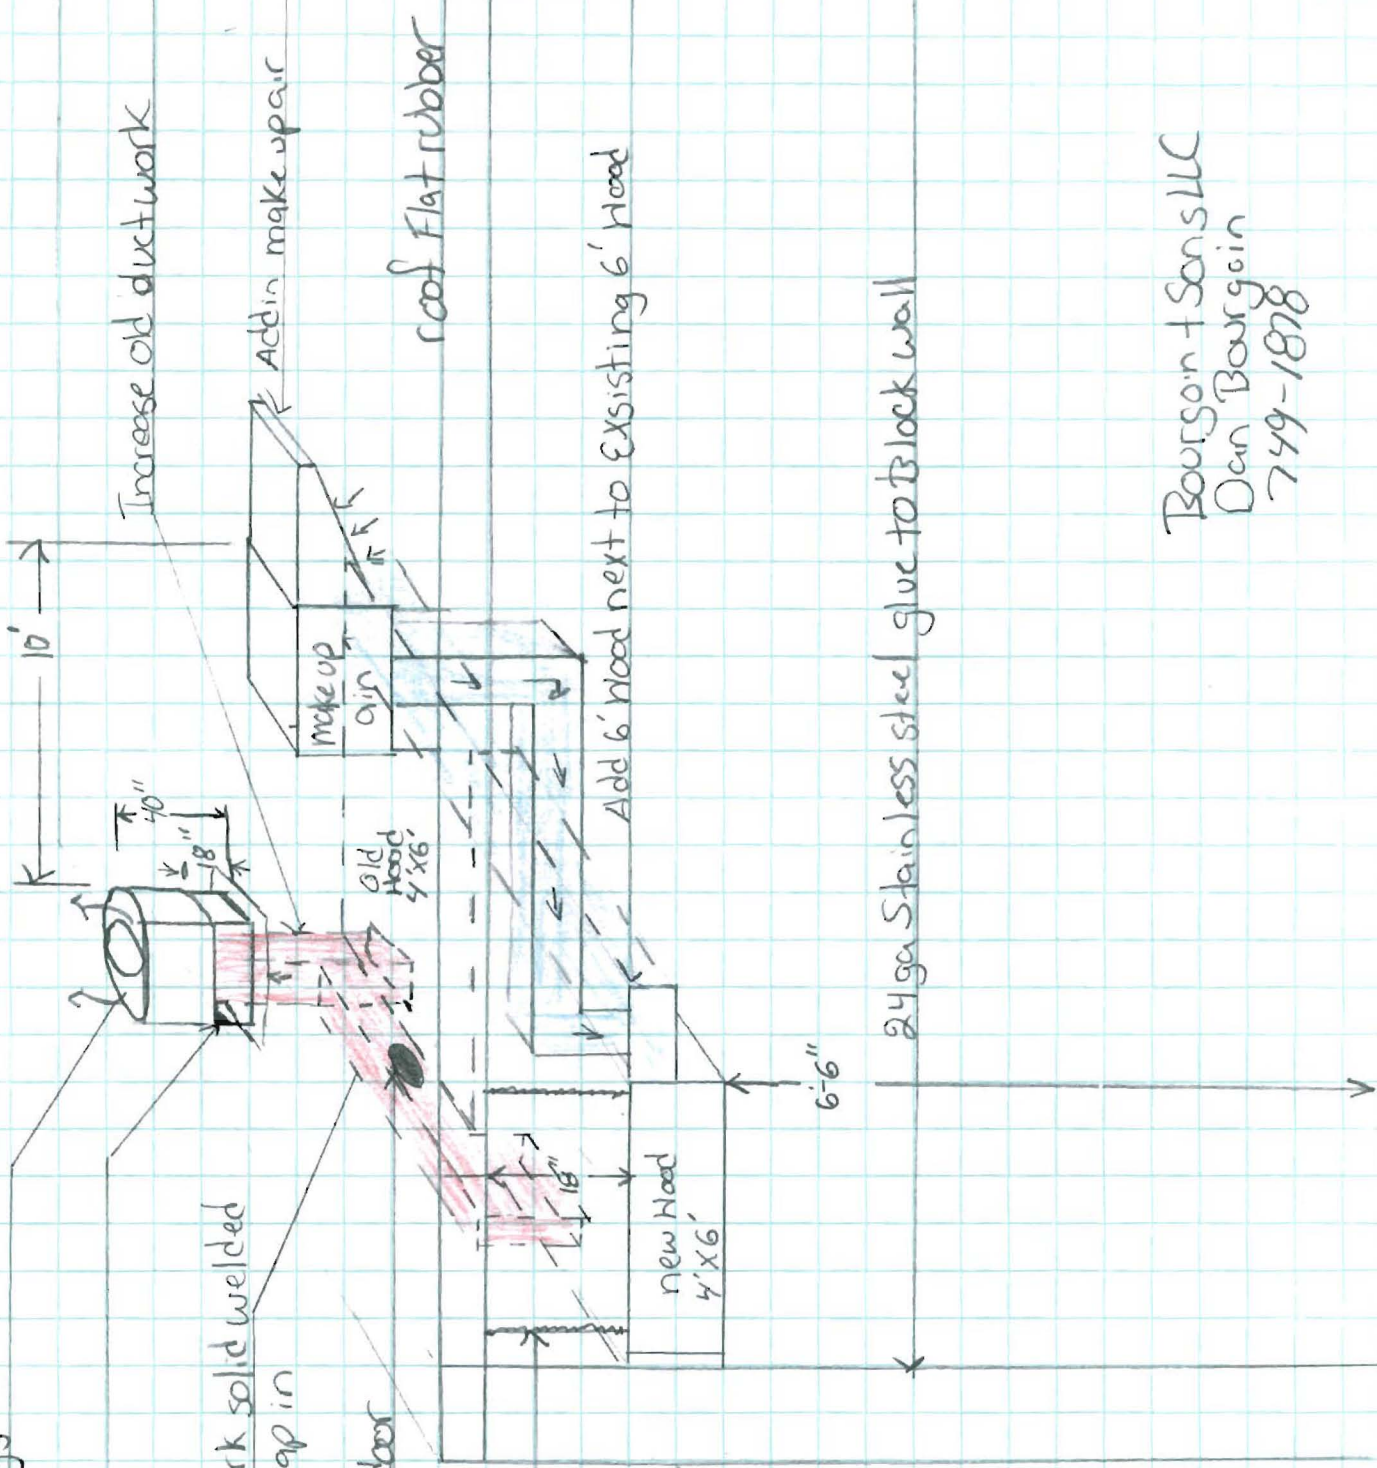 Increase old ductwork
Add in make up air
roof Flat rubber
10'
40"
18"
make up
air
Old
Hood
4'x6'
Add 6' Hood next to Exsisting 6' Hood
24 ga Stainless steel glue to Block wall
6'-6"
18"
new Hood
4'x6'
rk solid welded
ap in
Bourgoin + Sons LLC
Dan Bourgoin
749-1878